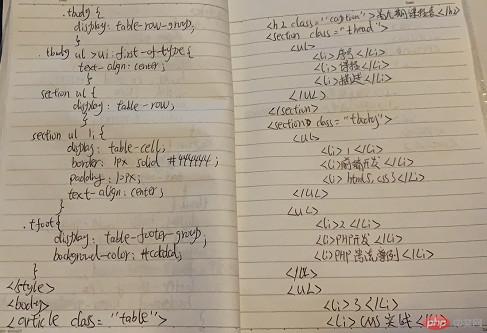 .tbody {
display: table-row-group;
}
.tbody ul>ui:first-of-type {
text-align: center;
}
section ul {
display: table-row;
}
section ul li {
display: table-cell;
border: 1px solid #444444;
padding: 1px;
text-align: center;
}
.tfoot {
display: table-footer-group;
background-color: #cdcdcd;
}
</style>
<body>
<article class="table">
<h2 class="caption"></h2>
<section class="thead">
<ul>
<li>序号</li>
<li>课程</li>
<li>描述</li>
</ul>
</section>
<section class="tbody">
<ul>
<li>1</li>
<li>前端开发</li>
<li>html5,css3</li>
</ul>
<ul>
<li>2</li>
<li>PHP开发</li>
<li>PHP</li>
</ul>
<ul>
<li>3</li>
<li>CMS实战</li>
php